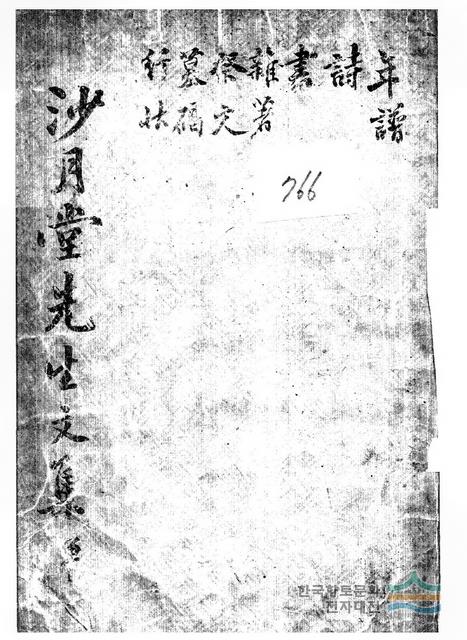 年譜
詩
書
雜著
祭文
墓碣
行狀
766
沙月堂先生文集
한국향토문화
전자대전